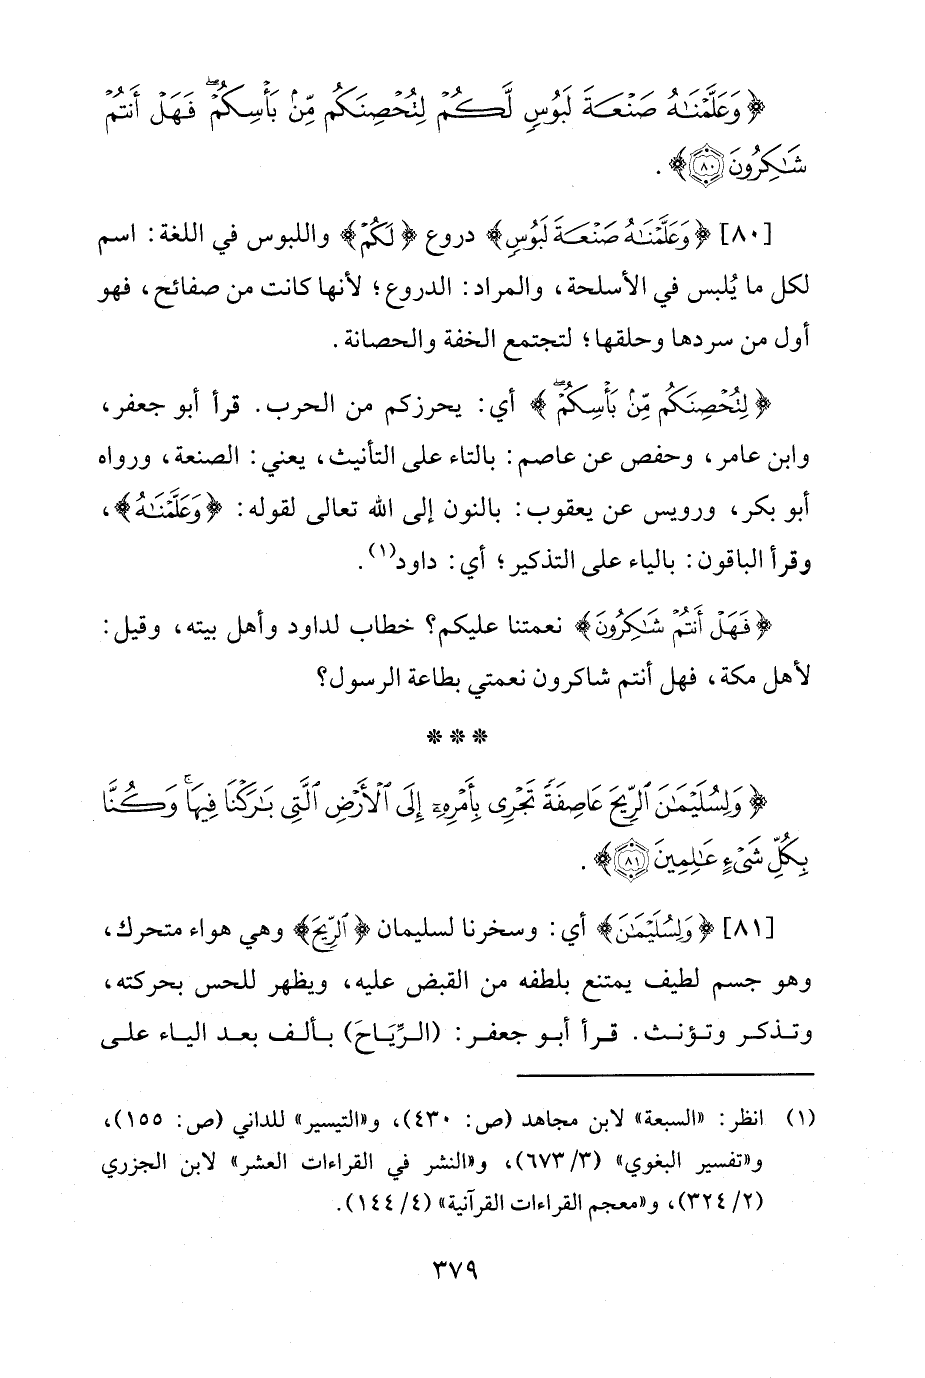 ﴿وَعَلَّمْنَٰهُ صَنْعَةَ لَبُوسٍ لَّكُمْ لِتُحْصِنَكُم مِّنۢ بَأْسِكُمْ ۖ فَهَلْ أَنتُمْ
شَٰكِرُونَ ٨٠﴾ .
[٨٠] ﴿وَعَلَّمْنَٰهُ صَنْعَةَ لَبُوسٍ﴾ دروع ﴿لَكُمْ﴾ واللبوس في اللغة: اسم
لكل ما يُلبس في الأسلحة، والمراد: الدروع؛ لأنها كانت من صفائح، فهو
أول من سردها وحلقها؛ لتجتمع الخفة والحصانة.
﴿لِتُحْصِنَكُم مِّنۢ بَأْسِكُمْ ۖ﴾ أي: يحرزكم من الحرب. قرأ أبو جعفر،
وابن عامر، وحفص عن عاصم: بالتاء على التأنيث، يعني: الصنعة، ورواه
أبو بكر، ورويس عن يعقوب: بالنون إلى الله تعالى لقوله: ﴿وَعَلَّمْنَٰهُ﴾،
وقرأ الباقون: بالياء على التذكير؛ أي: داود(١).
﴿فَهَلْ أَنتُمْ شَٰكِرُونَ﴾ نعمتنا عليكم؟ خطاب لداود وأهل بيته، وقيل:
لأهل مكة، فهل أنتم شاكرون نعمتي بطاعة الرسول؟
* * *
﴿وَلِسُلَيْمَٰنَ ٱلرِّيحَ عَاصِفَةً تَجْرِى بِأَمْرِهِۦٓ إِلَى ٱلْأَرْضِ ٱلَّتِى بَٰرَكْنَا فِيهَا ۚ وَكُنَّا
بِكُلِّ شَىْءٍ عَٰلِمِينَ ٨١﴾ .
[٨١] ﴿وَلِسُلَيْمَٰنَ﴾ أي: وسخرنا لسليمان ﴿ٱلرِّيحَ﴾ وهي هواء متحرك،
وهو جسم لطيف يمتنع بلطفه من القبض عليه، ويظهر للحس بحركته،
وتذكر وتؤنث. قرأ أبو جعفر: (الرِّيَاحَ) بألف بعد الياء على
(١) انظر: «السبعة» لابن مجاهد (ص: ٤٣٠)، و«التيسير» للداني (ص: ١٥٥)،
و«تفسير البغوي» (٣/ ٦٧٣)، و«النشر في القراءات العشر» لابن الجزري
(٢/ ٣٢٤)، و«معجم القراءات القرآنية» (٤/ ١٤٤).
٣٧٩